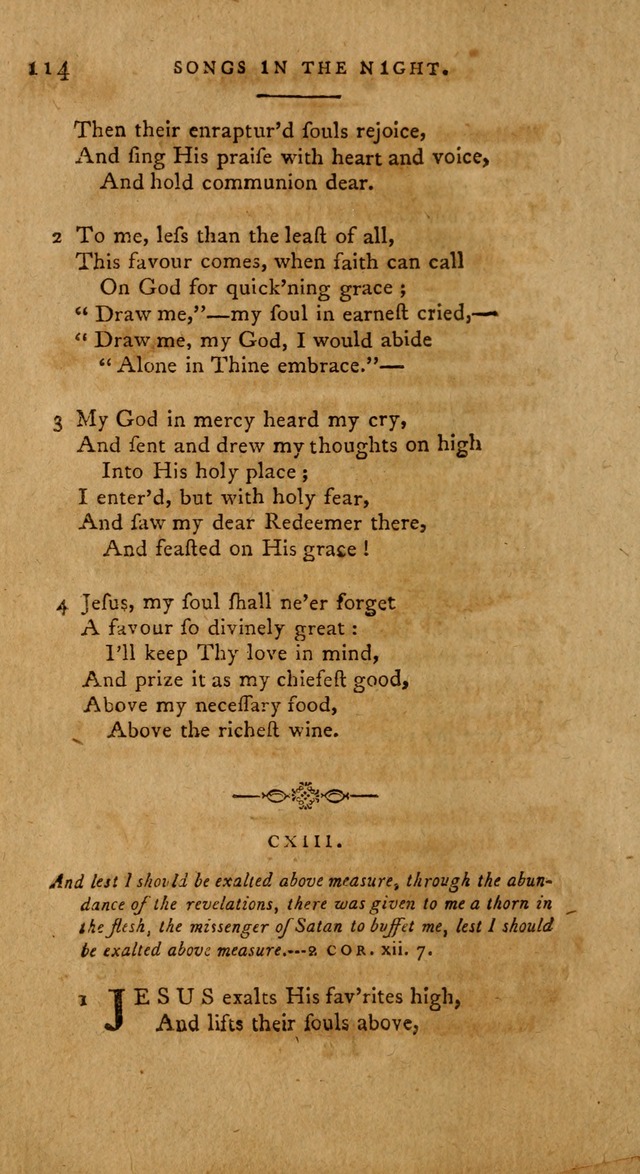 114 SONGS IN THE NIGHT.
Then their enraptur'd ſouls rejoice,
And ſing His praiſe with heart and voice,
And hold communion dear.
2 To me, leſs than the leaſt of all,
This favour comes, when faith can call
On God for quick'ning grace ;
“ Draw me,”—my ſoul in earneſt cried,—
“ Draw me, my God, I would abide
“ Alone in Thine embrace.”—
3 My God in mercy heard my cry,
And ſent and drew my thoughts on high
Into His holy place ;
I enter'd, but with holy fear,
And ſaw my dear Redeemer there,
And feaſted on His grace !
4 Jeſus, my ſoul ſhall ne'er forget
A favour ſo divinely great :
I'll keep Thy love in mind,
And prize it as my chiefeſt good,
Above my neceſſary food,
Above the richeſt wine.
CXIII.
And lest I should be exalted above measure, through the abun-
dance of the revelations, there was given to me a thorn in
the flesh, the missenger of Satan to buffet me, lest I should
be exalted above measure.---2 COR. xii. 7.
1 JESUS exalts His fav'rites high,
And lifts their ſouls above,